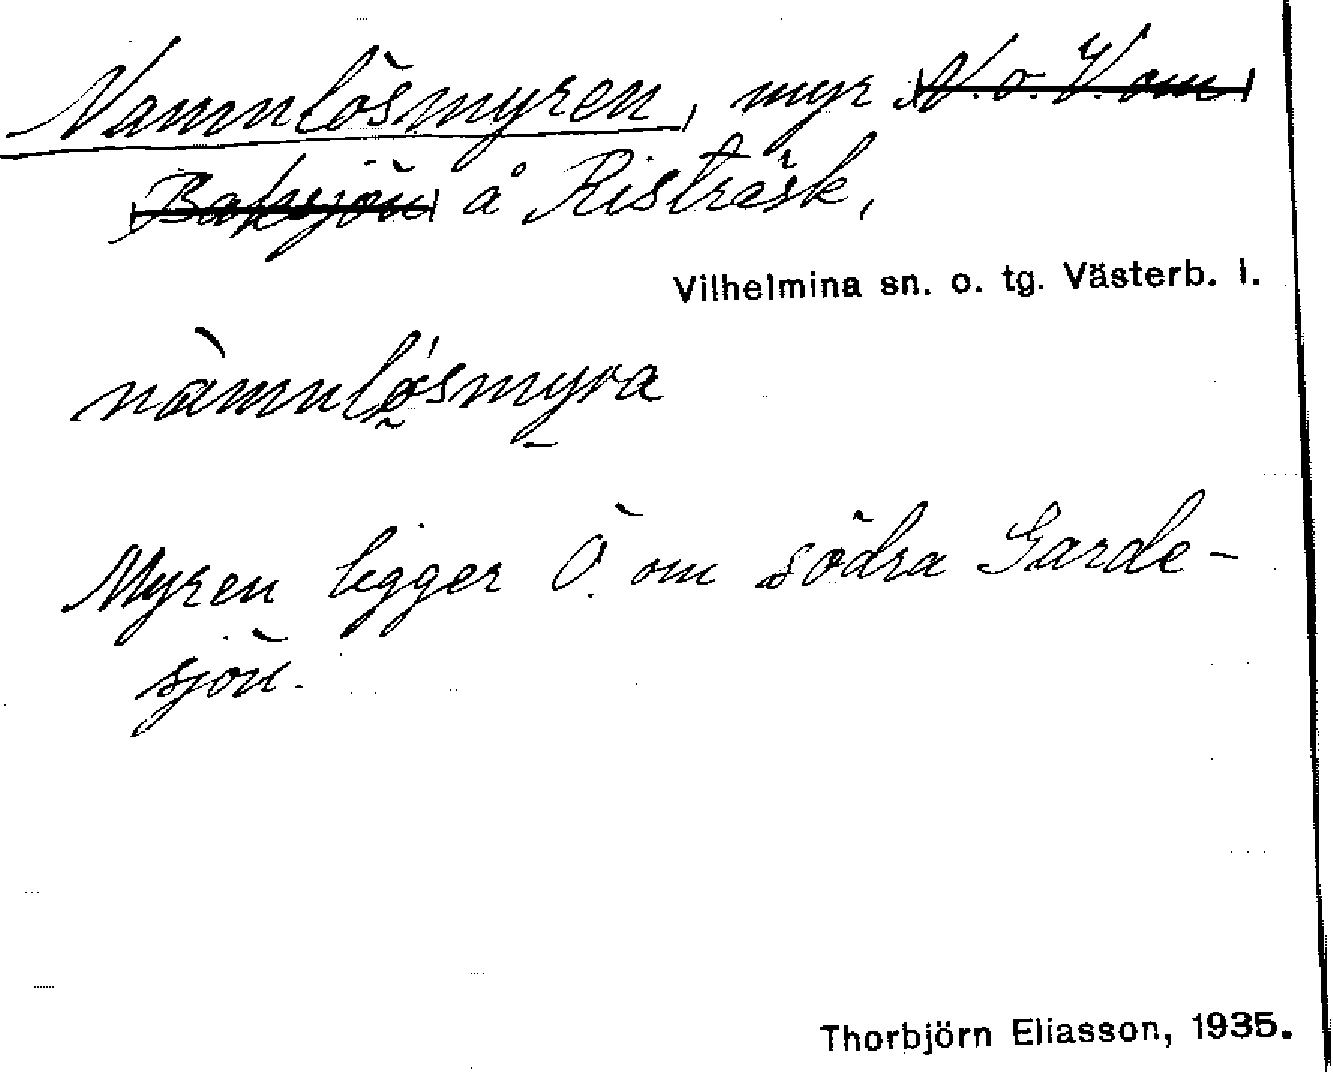 Namnlösmyren, myr N. o. V. om
Baksjön å Risträsk,
Vilhelmina sn. o. tg. Västerb. l.
nàmnlǿsmyra
Myren ligger Ö. om södra Garde-
sjön.
Thorbjörn Eliasson, 1935.